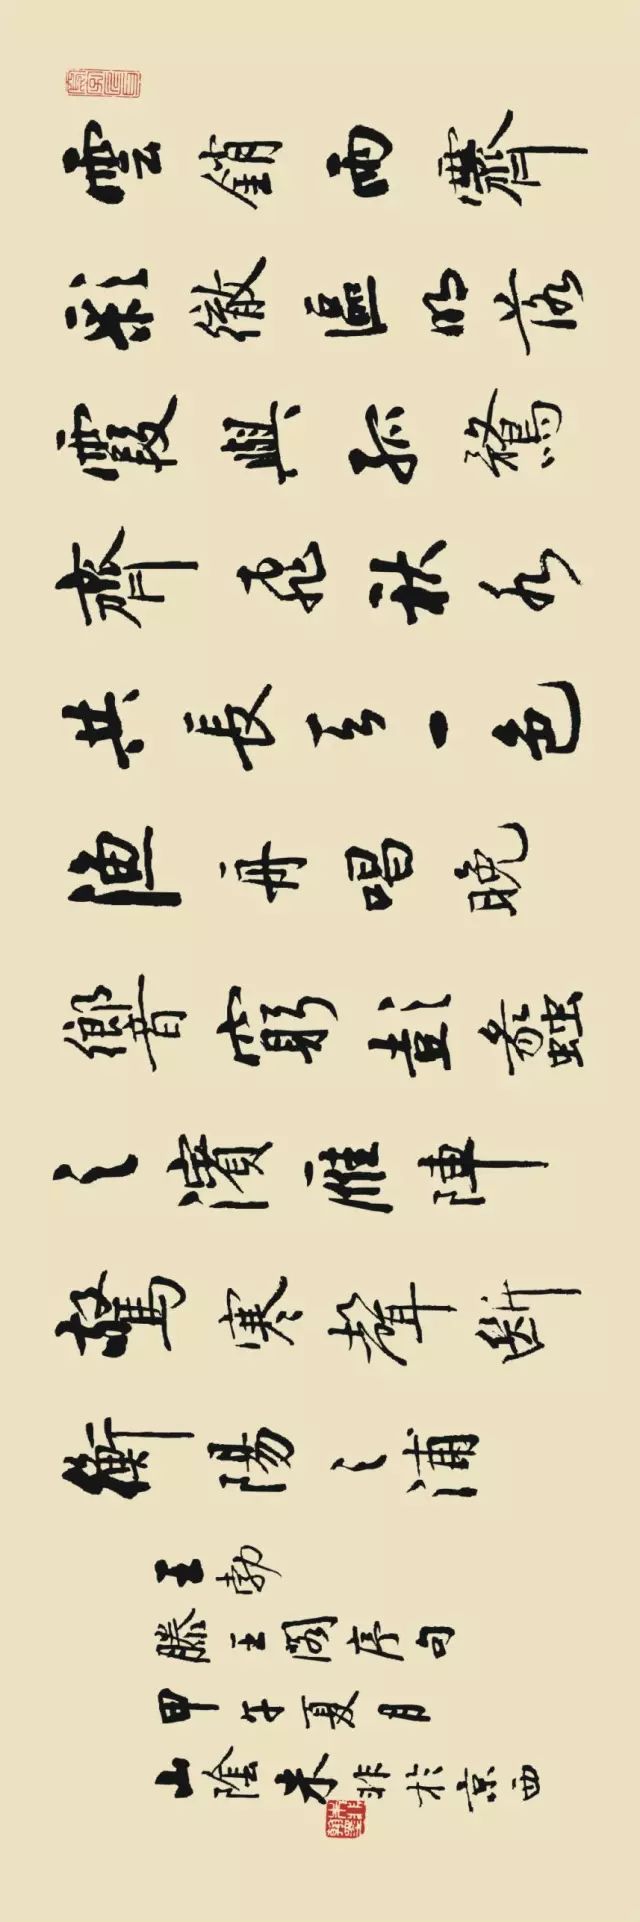 雲銷雨霽
彩徹區明落
霞與孤鶩
齊飛秋水
共長天一色
漁舟唱晚
響窮彭蠡
之濱雁陣
驚寒聲斷
衡陽之浦
王勃
滕王閣序句
甲午夏月
山陰朱非於京西